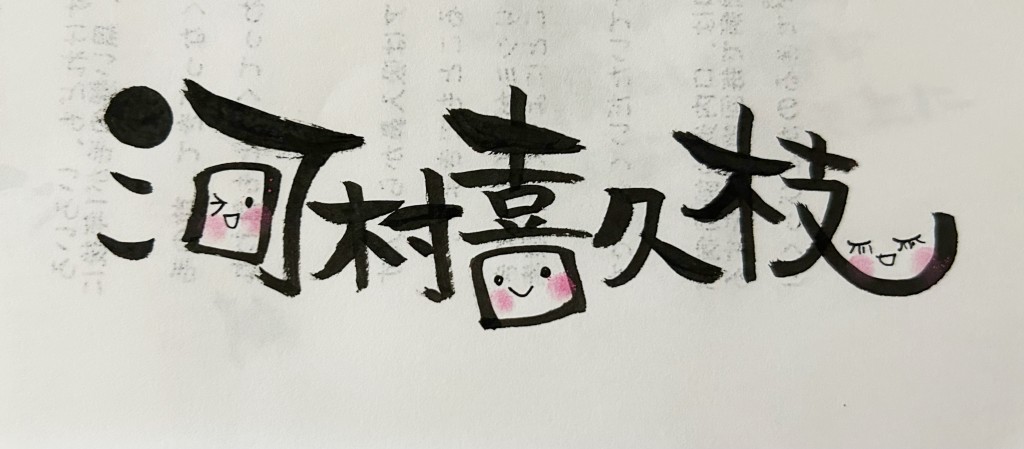 河村喜久枝